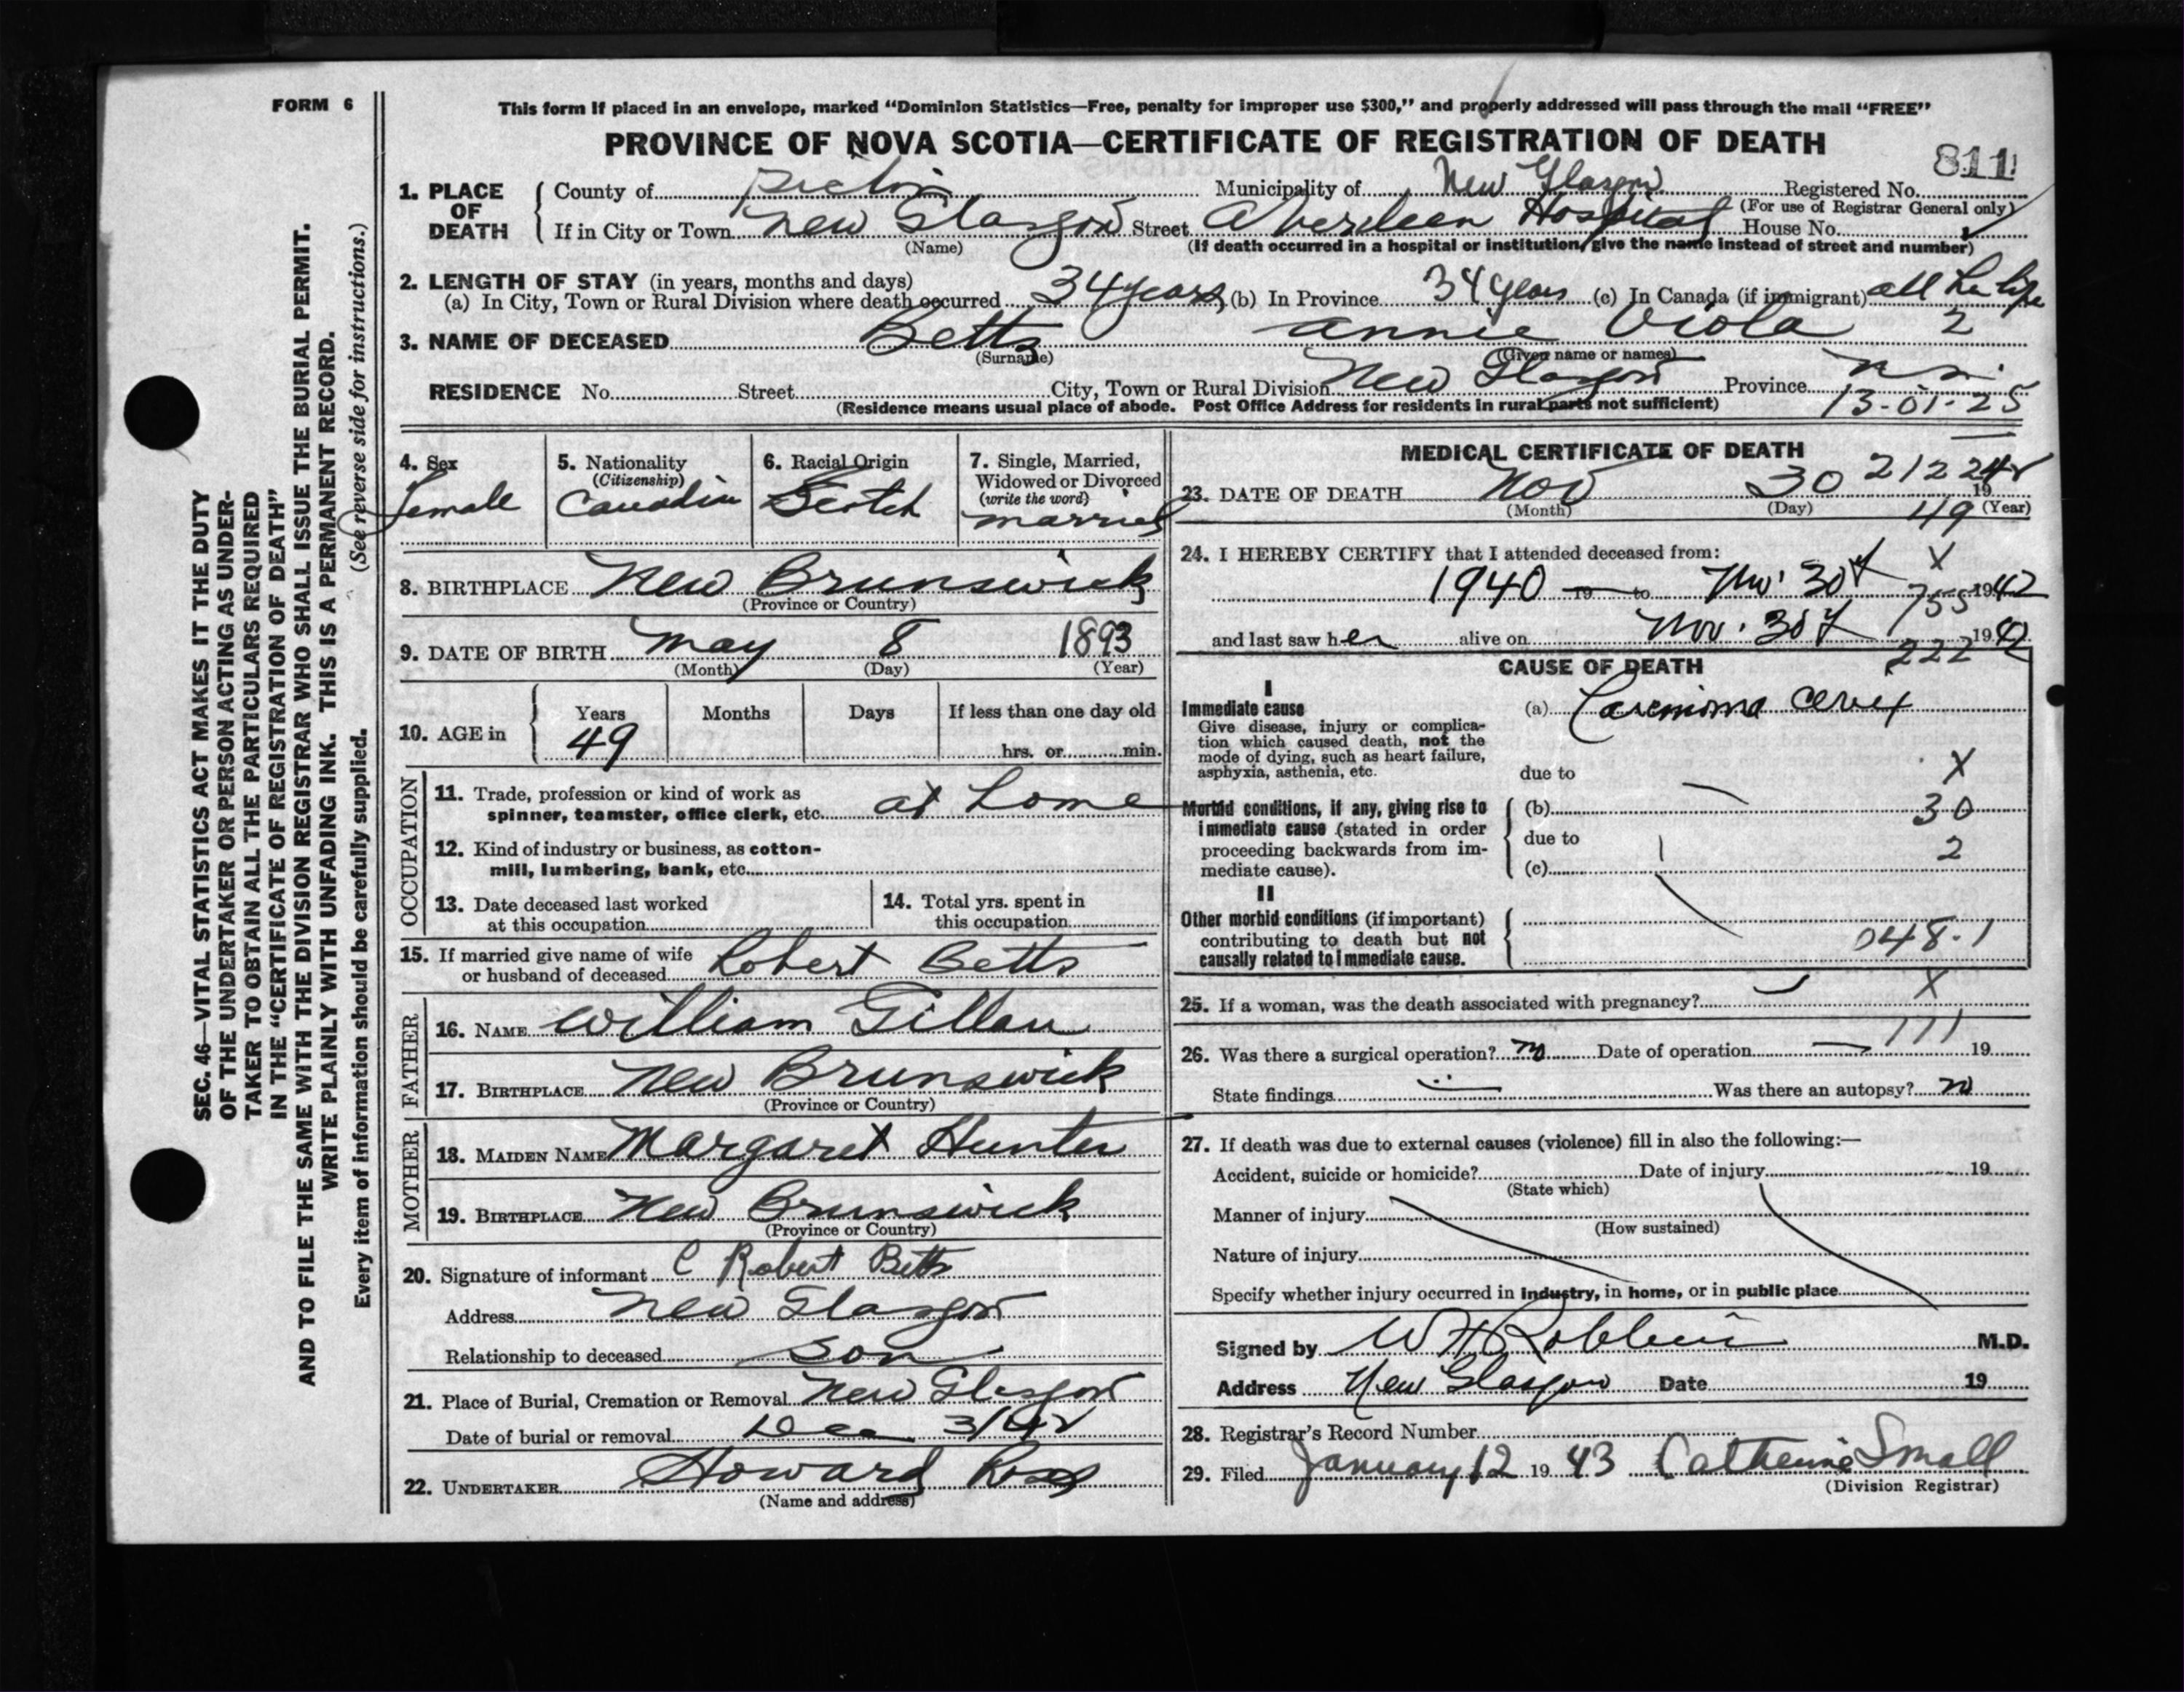 FORM 6
This form if placed in an envelope, marked "Dominion Statistics—Free, penalty for improper use $300," and properly addressed will pass through the mail "FREE"
PROVINCE OF NOVA SCOTIA—CERTIFICATE OF REGISTRATION OF DEATH
811
1. PLACE OF DEATH
County of Pictou Municipality of New Glasgow Registered No.
(For use of Registrar General only)
If in City or Town New Glasgow Street Aberdeen Hospital House No.
(Name) (If death occurred in a hospital or institution, give the name instead of street and number)
2. LENGTH OF STAY (in years, months and days)
(a) In City, Town or Rural Division where death occurred 34 years (b) In Province 34 years (c) In Canada (if immigrant) all her life
3. NAME OF DECEASED Betts Annie Viola 2
(Surname) (Given name or names)
RESIDENCE No. Street City, Town or Rural Division New Glasgow Province N.S.
(Residence means usual place of abode. Post Office Address for residents in rural parts not sufficient) 13-01-25
4. Sex
Female
5. Nationality
(Citizenship)
Canadian
6. Racial Origin
Scotch
7. Single, Married, Widowed or Divorced
(write the word)
married
8. BIRTHPLACE New Brunswick
(Province or Country)
9. DATE OF BIRTH May 8 1893
(Month) (Day) (Year)
10. AGE in
Years Months Days If less than one day old
49 hrs. or min.
OCCUPATION
11. Trade, profession or kind of work as spinner, teamster, office clerk, etc. at home
12. Kind of industry or business, as cotton-mill, lumbering, bank, etc.
13. Date deceased last worked at this occupation
14. Total yrs. spent in this occupation
15. If married give name of wife or husband of deceased Robert Betts
FATHER
16. NAME William Gillan
17. BIRTHPLACE New Brunswick
(Province or Country)
MOTHER
18. MAIDEN NAME Margaret Hunter
19. BIRTHPLACE New Brunswick
(Province or Country)
20. Signature of informant C Robert Betts
Address New Glasgow
Relationship to deceased Son
21. Place of Burial, Cremation or Removal New Glasgow
Date of burial or removal Dec 3/42
22. UNDERTAKER Howard Ross
(Name and address)
MEDICAL CERTIFICATE OF DEATH
23. DATE OF DEATH Nov 30 1942
212 2
(Month) (Day) (Year)
49
24. I HEREBY CERTIFY that I attended deceased from:
X
1940 19 to Nov. 30th 1942
755
and last saw her alive on Nov. 30th 1942
222
CAUSE OF DEATH
I
Immediate cause
Give disease, injury or complication which caused death, not the mode of dying, such as heart failure, asphyxia, asthenia, etc.
(a) Carcinoma cervix
due to X
Morbid conditions, if any, giving rise to immediate cause (stated in order proceeding backwards from immediate cause).
(b) 30
due to 2
(c)
II
Other morbid conditions (if important) contributing to death but not causally related to immediate cause.
048.1
25. If a woman, was the death associated with pregnancy? X
171
26. Was there a surgical operation? no Date of operation 19
State findings Was there an autopsy? no
27. If death was due to external causes (violence) fill in also the following:—
Accident, suicide or homicide? Date of injury 19
(State which)
Manner of injury
(How sustained)
Nature of injury
Specify whether injury occurred in industry, in home, or in public place
Signed by M.D.
Address New Glasgow Date 19
28. Registrar's Record Number
29. Filed January 12 1943 Catherine Small
(Division Registrar)
SEC. 46—VITAL STATISTICS ACT MAKES IT THE DUTY
OF THE UNDERTAKER OR PERSON ACTING AS UNDER-
TAKER TO OBTAIN ALL THE PARTICULARS REQUIRED
IN THE "CERTIFICATE OF REGISTRATION OF DEATH"
AND TO FILE THE SAME WITH THE DIVISION REGISTRAR WHO SHALL ISSUE THE BURIAL PERMIT.
WRITE PLAINLY WITH UNFADING INK. THIS IS A PERMANENT RECORD.
Every item of information should be carefully supplied. (See reverse side for instructions.)